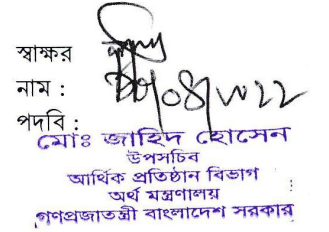 স্বাক্ষর
নাম :
পদবি :
মোঃ জাহিদ হোসেন
উপসচিব
আর্থিক প্রতিষ্ঠান বিভাগ
অর্থ মন্ত্রণালয়
গণপ্রজাতন্ত্রী বাংলাদেশ সরকার